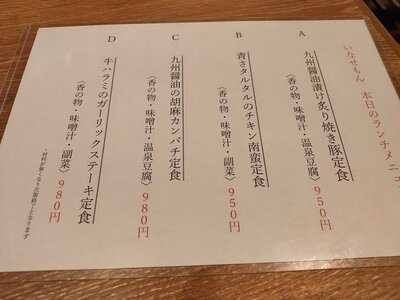 いなせもん 本日のランチメニュ
A
九州醤油漬け炙り焼き豚定食
〈香の物・味噌汁・温泉豆腐〉９５０円
B
青さタルタルのチキン南蛮定食
〈香の物・味噌汁・副菜〉９５０円
C
九州醤油の胡麻カンパチ定食
〈香の物・味噌汁・温泉豆腐〉９８０円
D
牛ハラミのガーリックステーキ定食
〈香の物・味噌汁・副菜〉９８０円
・材料が無くなり次第終了となります